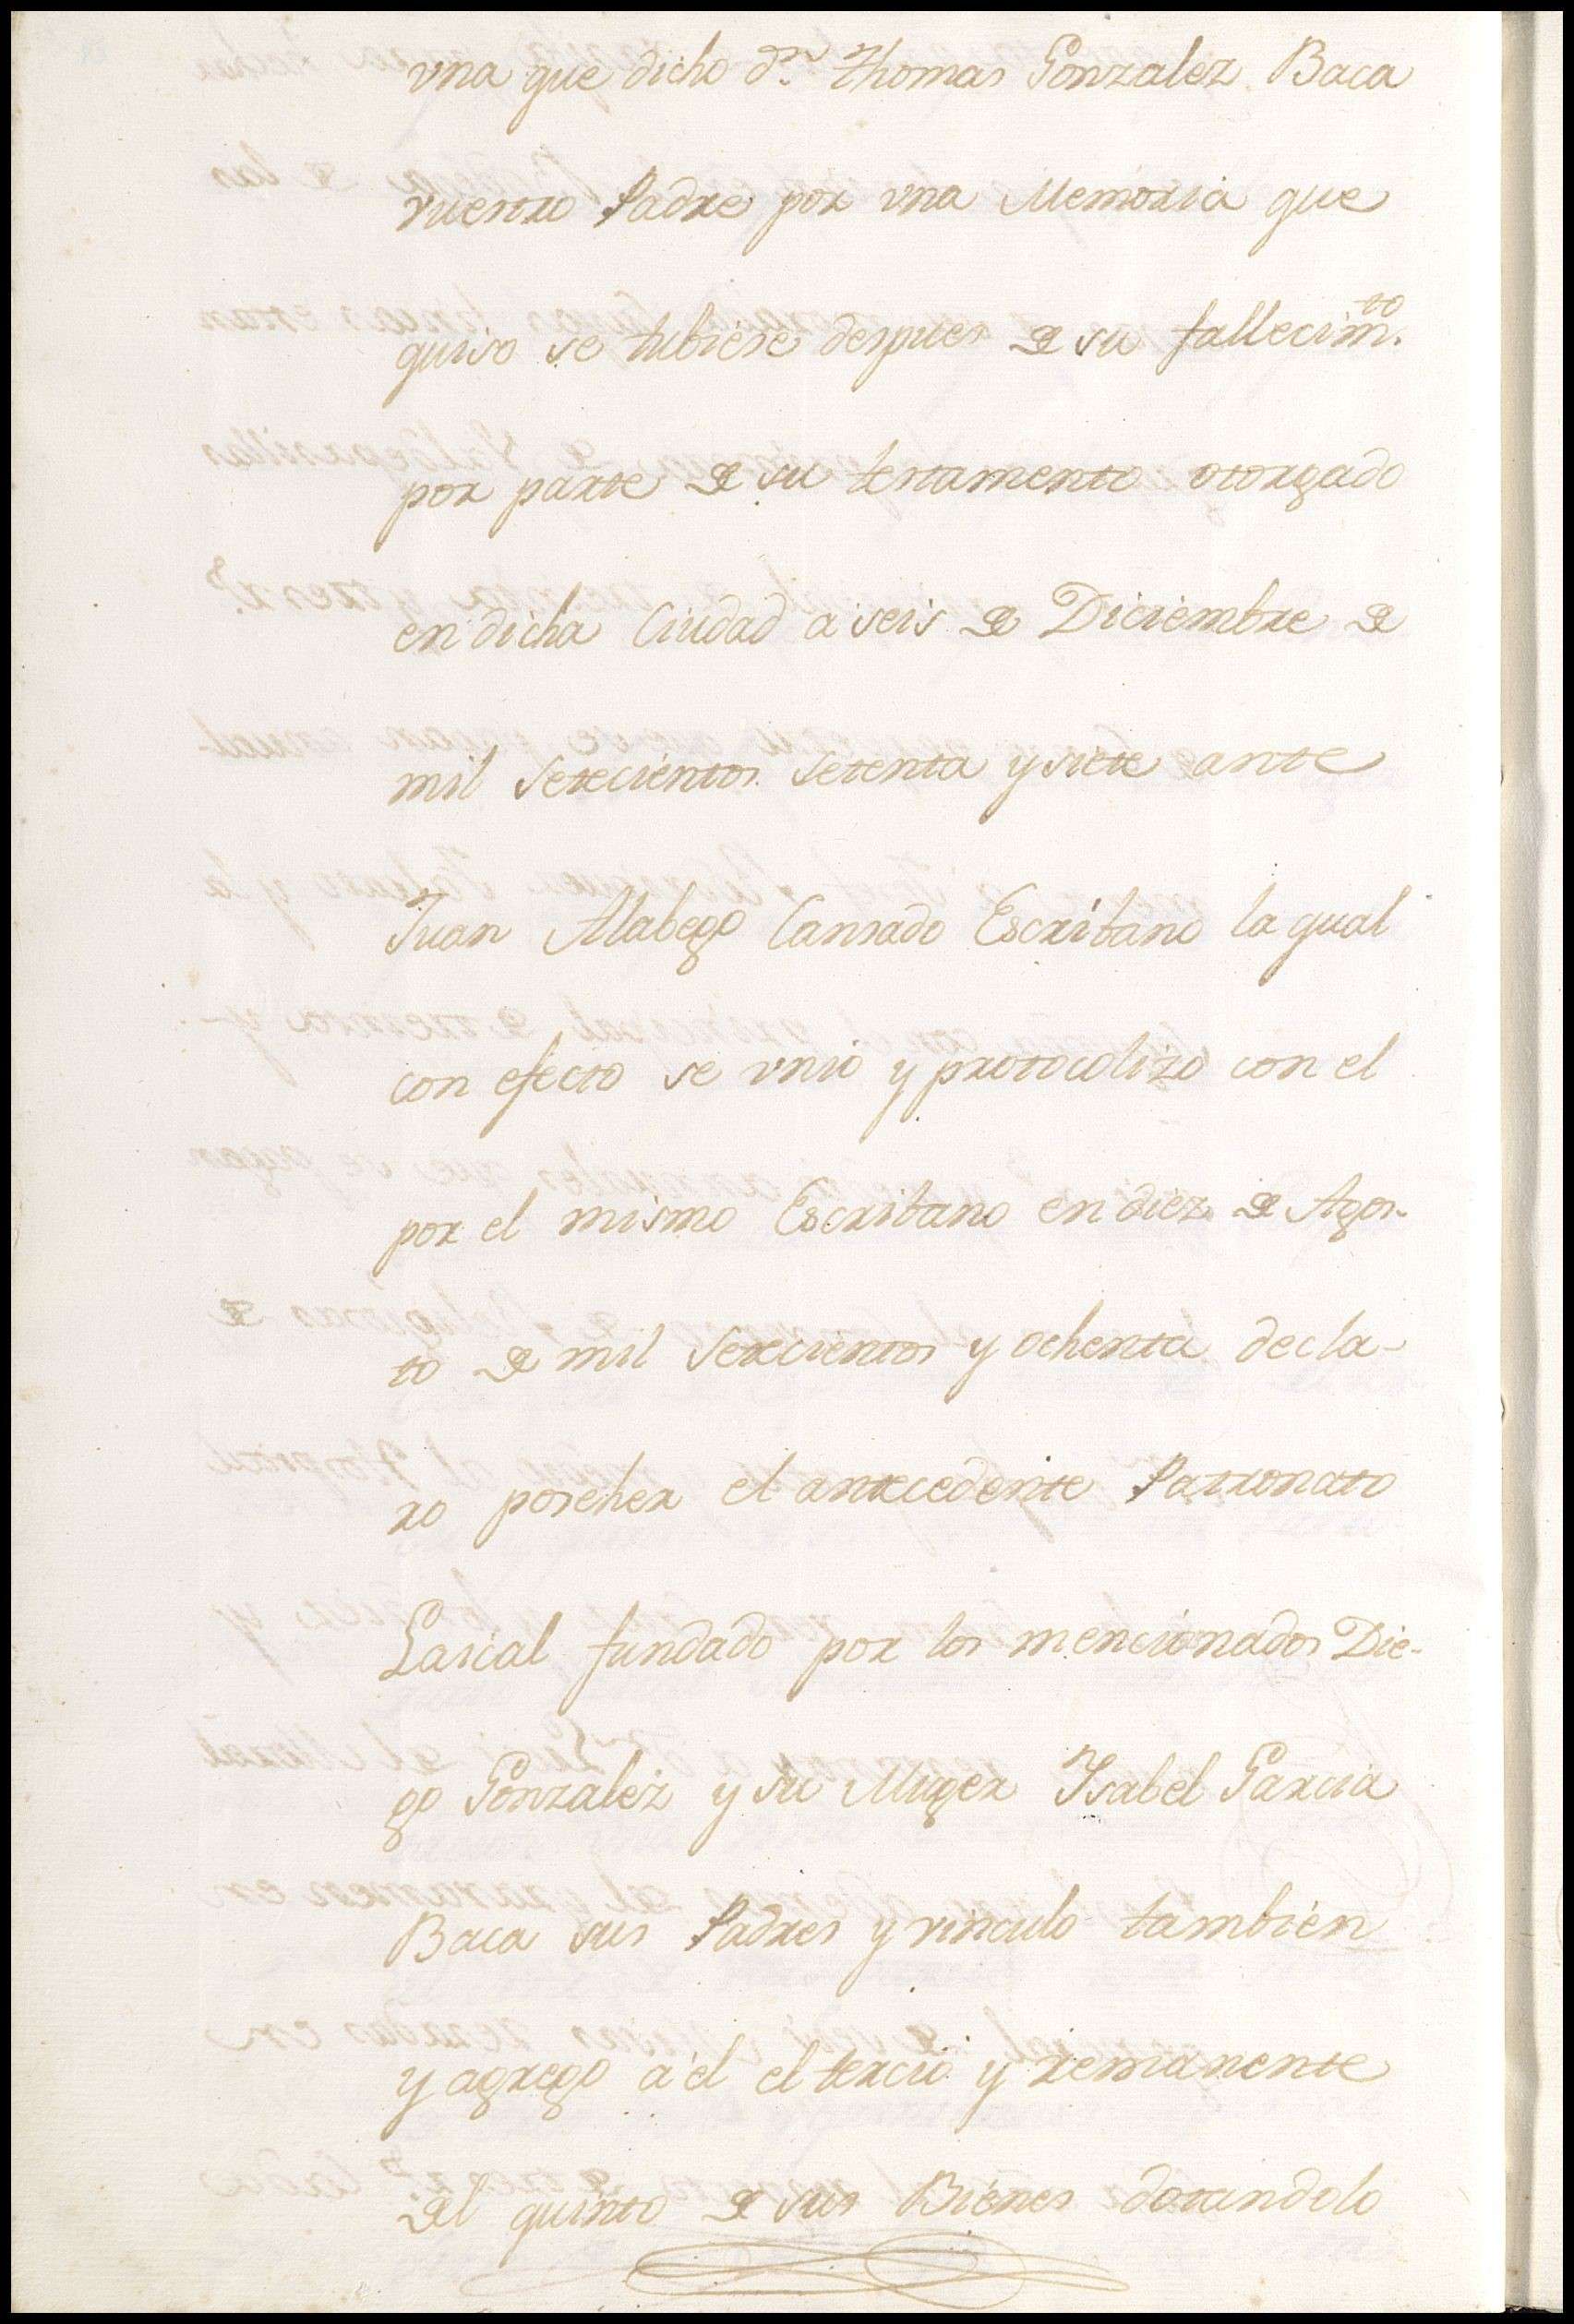 vna que dicho dn. Thomas Gonzalez Baca
vuestro Padre por vna Memoria que
quiso se tubiese despues de su fallecimto.
por parte de su testamento otorgado
en dicha Ciudad a seis de Diciembre de
mil setecientos setenta y siete ante
Juan Alabego Cansado Escribano la qual
con efecto se vnio y protocolizo con el
por el mismo Escribano en diez de Agos-
to de mil setecientos y ochenta decla-
ro poseher el antecedente Patronato
Laical fundado por los mencionados Die-
go Gonzalez y su Muger Ysabel Garcia
Baca sus Padres y vinculo tambien
y agrego a el el tercio y remanente
del quinto de sus Bienes dotandolo